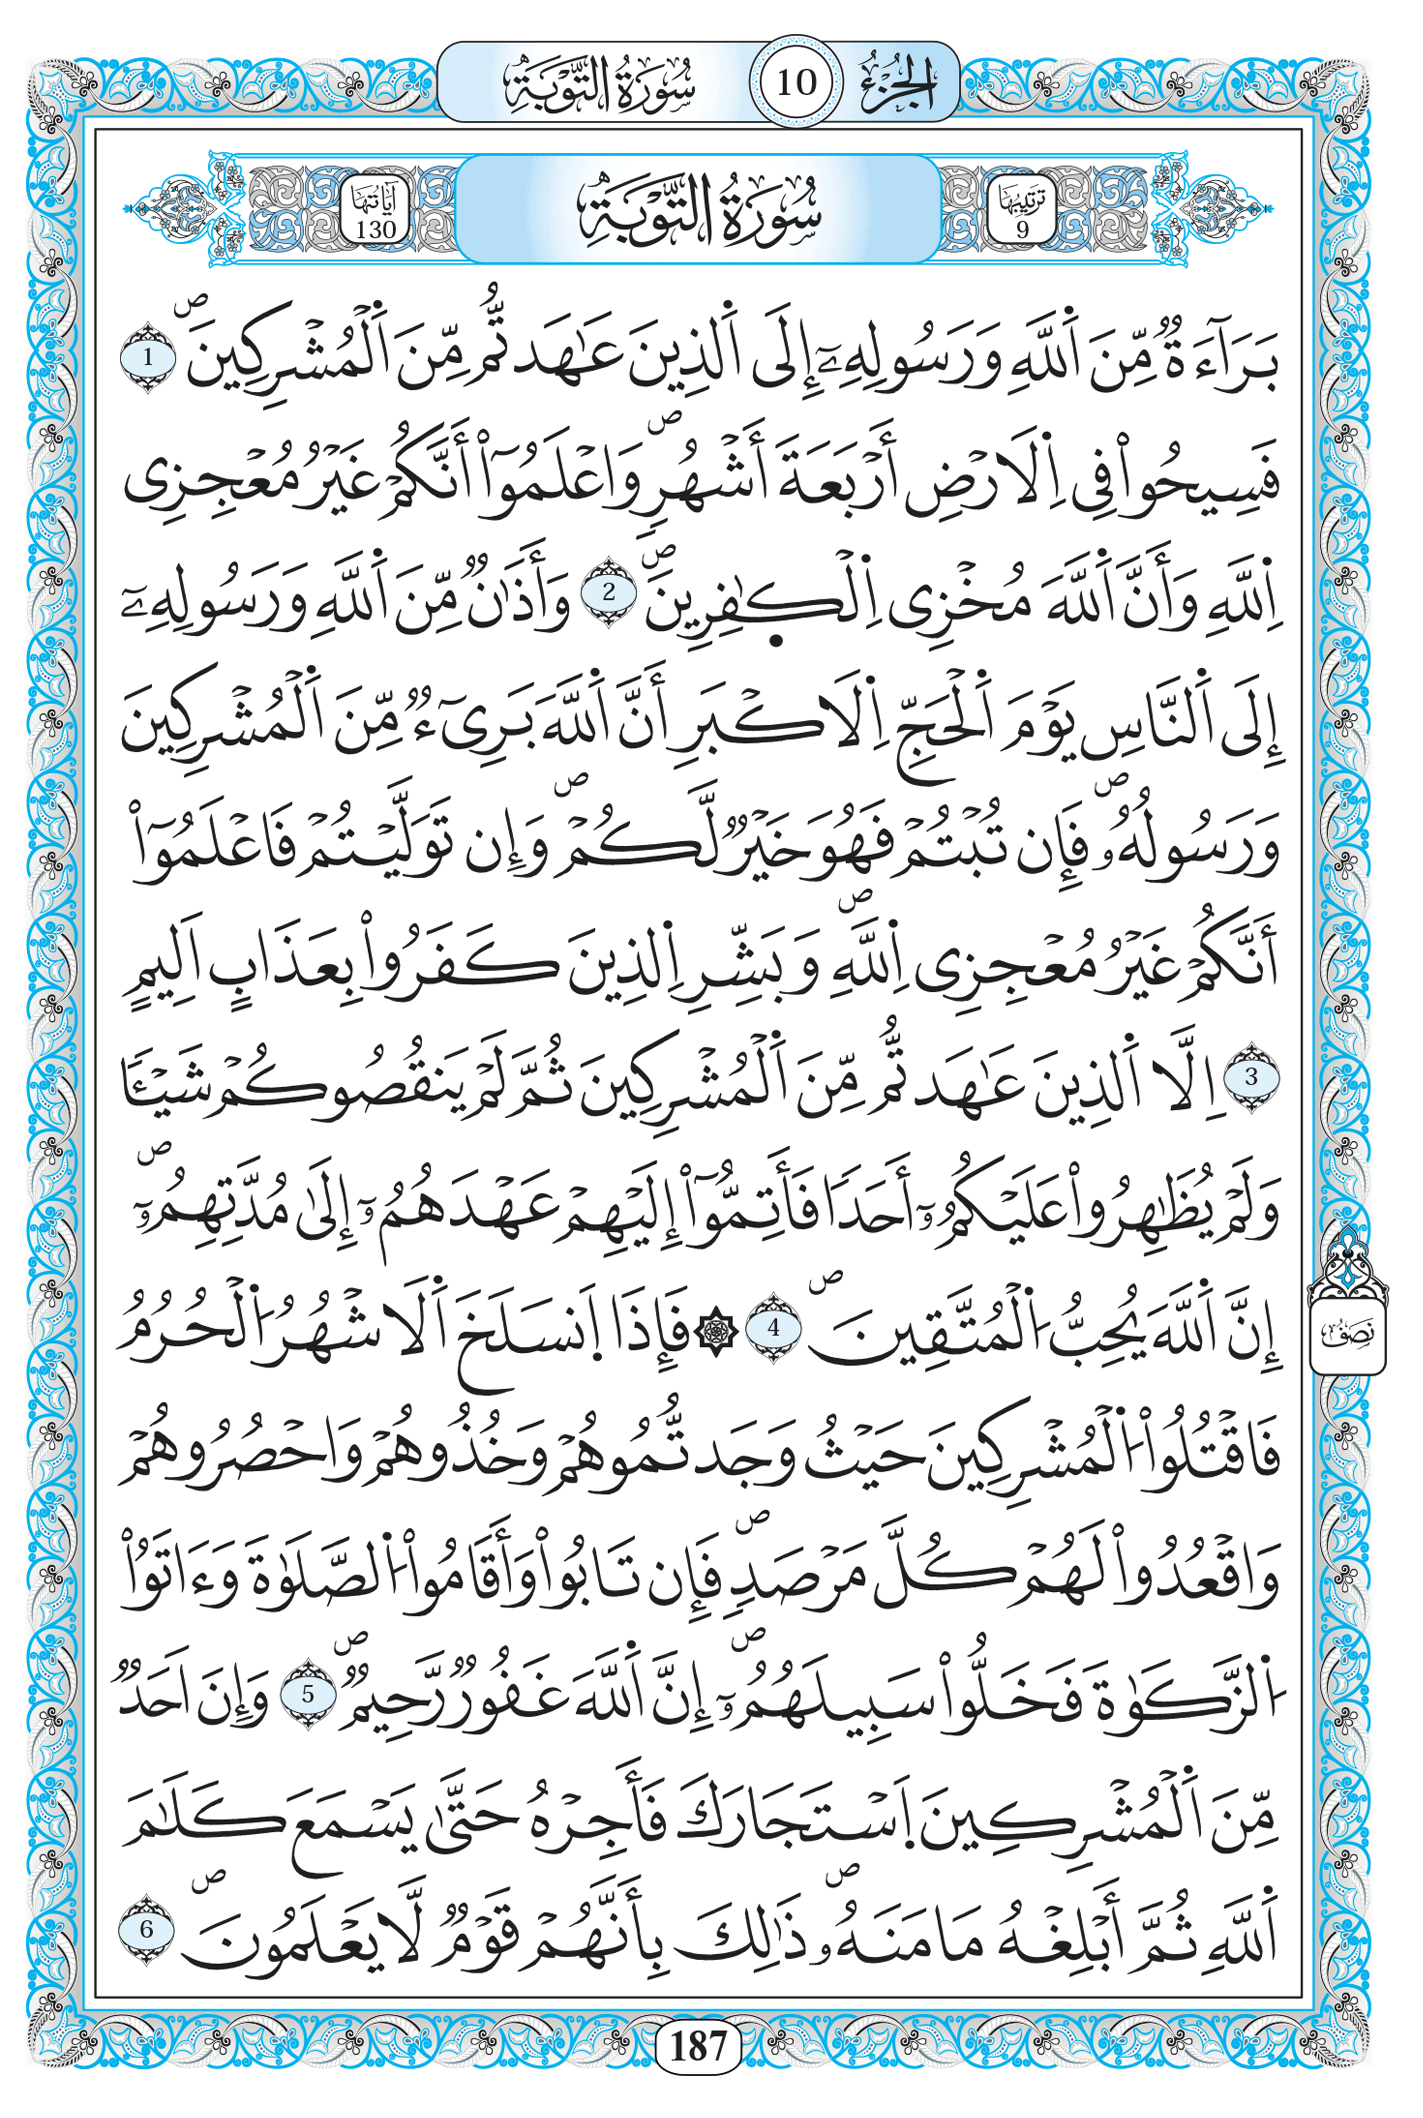 الجزء 10 سورة التوبة
ترتيبها 9 سُورَةُ التَّوْبَةِ آياتها 130
بَرَآءَةٞ مِّنَ اَ۬للَّهِ وَرَسُولِهِۦٓ إِلَي اَ۬لذِينَ عَٰهَدتُّم مِّنَ اَ۬لْمُشْرِكِينَۖ 1
فَسِيحُواْ فِي اِ۬لَارْضِ أَرْبَعَةَ أَشْهُرٖۖ وَاعْلَمُوٓاْ أَنَّكُمْ غَيْرُ مُعْجِزِي
اِ۬للَّهِ وَأَنَّ اَ۬للَّهَ مُخْزِي اِ۬لْكٰ۪فِرِينَۖ 2 وَأَذَٰنٞ مِّنَ اَ۬للَّهِ وَرَسُولِهِۦٓ
إِلَي اَ۬لنَّاسِ يَوْمَ اَ۬لْحَجِّ اِ۬لَاكْبَرِ أَنَّ اَ۬للَّهَ بَرِيٓءٞ مِّنَ اَ۬لْمُشْرِكِينَ
وَرَسُولُهُۥۖ فَإِن تُبْتُمْ فَهُوَ خَيْرٞ لَّكُمْۖ وَإِن تَوَلَّيْتُمْ فَاعْلَمُوٓاْ
أَنَّكُمْ غَيْرُ مُعْجِزِي اِ۬للَّهِۖ وَبَشِّرِ اِ۬لذِينَ كَفَرُواْ بِعَذَابٍ اَلِيمٍ
3 اِلَّا اَ۬لذِينَ عَٰهَدتُّم مِّنَ اَ۬لْمُشْرِكِينَ ثُمَّ لَمْ يَنقُصُوكُمْ شَيْـٔٗا
وَلَمْ يُظَٰهِرُواْ عَلَيْكُمُۥٓ أَحَدٗا فَأَتِمُّوٓاْ إِلَيْهِمْ عَهْدَهُمُۥٓ إِلَىٰ مُدَّتِهِمُۥٓۖ
إِنَّ اَ۬للَّهَ يُحِبُّ اُ۬لْمُتَّقِينَۖ 4 ۞ فَإِذَا اَ۪نسَلَخَ اَ۬لَاشْهُرُ اُ۬لْحُرُمُ
نصف
فَاقْتُلُواْ اُ۬لْمُشْرِكِينَ حَيْثُ وَجَدتُّمُوهُمْ وَخُذُوهُمْ وَاحْصُرُوهُمْ
وَاقْعُدُواْ لَهُمْ كُلَّ مَرْصَدٖۖ فَإِن تَابُواْ وَأَقَامُواْ اُ۬لصَّلَوٰةَ وَءَاتَوُاْ
اُ۬لزَّكَوٰةَ فَخَلُّواْ سَبِيلَهُمُۥٓۖ إِنَّ اَ۬للَّهَ غَفُورٞ رَّحِيمٞۖ 5 وَإِنَ اَحَدٞ
مِّنَ اَ۬لْمُشْرِكِينَ اَ۪سْتَجَارَكَ فَأَجِرْهُ حَتَّىٰ يَسْمَعَ كَلَٰمَ
اَ۬للَّهِ ثُمَّ أَبْلِغْهُ مَامَنَهُۥۖ ذَٰلِكَ بِأَنَّهُمْ قَوْمٞ لَّا يَعْلَمُونَۖ 6
187